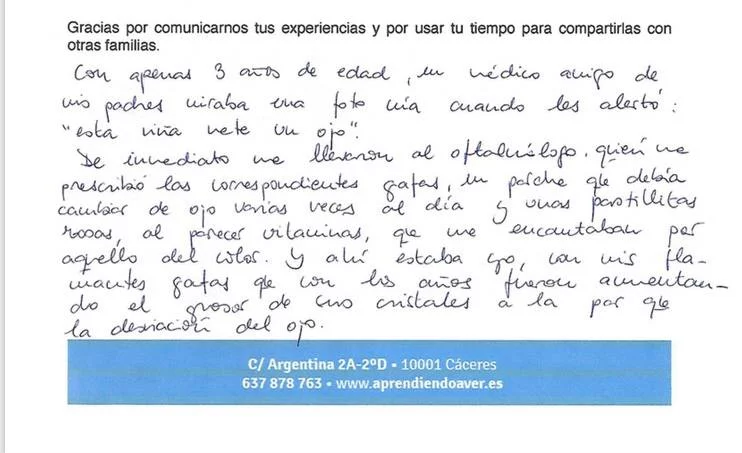 Gracias por comunicarnos tus experiencias y por usar tu tiempo para compartirlas con
otras familias.
Con apenas 3 años de edad, un médico amigo de
mis padres miraba una foto mía cuando les alertó:
"esta niña mete un ojo".
De inmediato me llevaron al oftalmólogo, quién me
prescribió las correspondientes gafas, un parche que debía
cambiar de ojo varias veces al día y unas pastillitas
rosas, al parecer vitaminas, que me encantaban por
aquello del color. Y ahí estaba yo, con mis fla-
mantes gafas que con los años fueron aumentan-
do el grosor de sus cristales a la par que
la desviación del ojo.
C/ Argentina 2A-2ºD • 10001 Cáceres
637 878 763 • www.aprendiendoaver.es